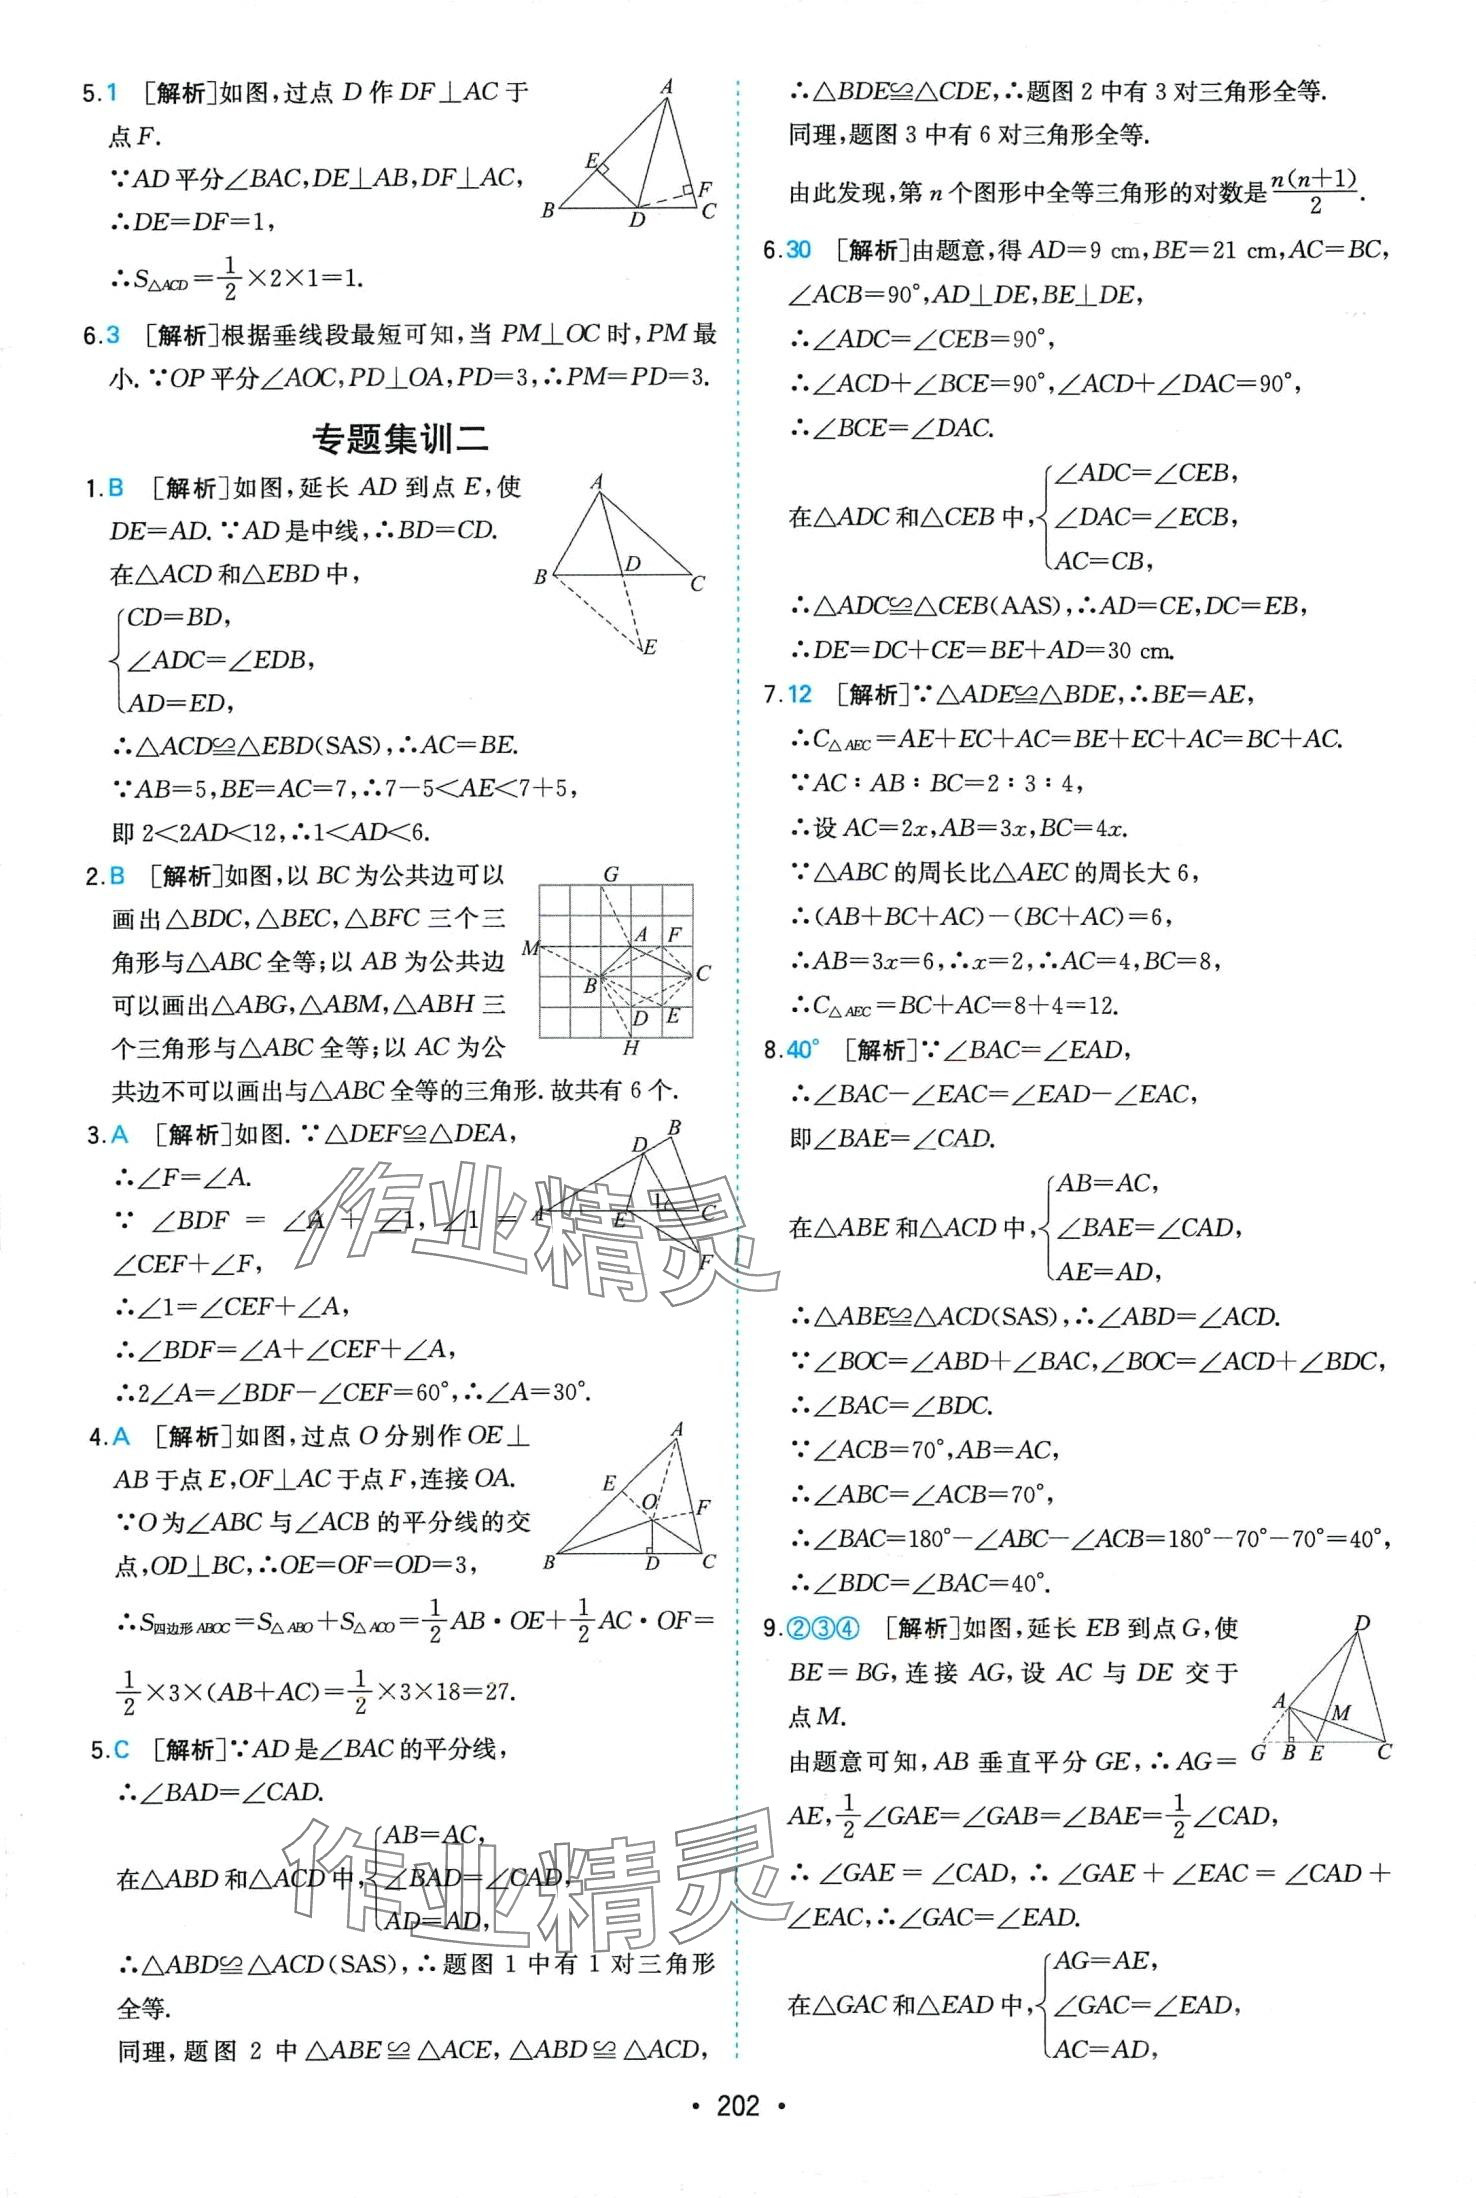 5.1 [解析]如图,过点 D 作 DF⊥AC 于
点 F.
∵AD 平分∠BAC,DE⊥AB,DF⊥AC,
∴DE=DF=1,
∴S△ACD=1/2×2×1=1.
A
E
F
B
D
C
6.3 [解析]根据垂线段最短可知,当 PM⊥OC 时,PM 最
小.∵OP 平分∠AOC,PD⊥OA,PD=3,∴PM=PD=3.
专题集训二
1.B [解析]如图,延长 AD 到点 E,使
DE=AD.∵AD 是中线,∴BD=CD.
在△ACD 和△EBD 中,
CD=BD,
∠ADC=∠EDB,
AD=ED,
∴△ACD≌△EBD(SAS),∴AC=BE.
∵AB=5,BE=AC=7,∴7-5<AE<7+5,
即 2<2AD<12,∴1<AD<6.
A
B
D
C
E
2.B [解析]如图,以 BC 为公共边可以
画出△BDC,△BEC,△BFC 三个三
角形与△ABC 全等;以 AB 为公共边
可以画出△ABG,△ABM,△ABH 三
个三角形与△ABC 全等;以 AC 为公
共边不可以画出与△ABC 全等的三角形.故共有 6 个.
G
M
A
F
B
C
D
E
H
3.A [解析]如图.∵△DEF≌△DEA,
∴∠F=∠A.
∵ ∠BDF = ∠A + ∠1, ∠1 =
∠CEF+∠F,
∴∠1=∠CEF+∠A,
∴∠BDF=∠A+∠CEF+∠A,
∴2∠A=∠BDF-∠CEF=60°,∴∠A=30°.
B
D
1
A
E
C
F
4.A [解析]如图,过点 O 分别作 OE⊥
AB 于点 E,OF⊥AC 于点 F,连接 OA.
∵O 为∠ABC 与∠ACB 的平分线的交
点,OD⊥BC,∴OE=OF=OD=3,
∴S四边形ABOC=S△ABO+S△ACO=1/2AB·OE+1/2AC·OF=
1/2×3×(AB+AC)=1/2×3×18=27.
A
E
O
F
B
D
C
5.C [解析]∵AD 是∠BAC 的平分线,
∴∠BAD=∠CAD.
在△ABD 和△ACD 中,
AB=AC,
∠BAD=∠CAD,
AD=AD,
∴△ABD≌△ACD(SAS),∴题图 1 中有 1 对三角形
全等.
同理,题图 2 中△ABE≌△ACE,△ABD≌△ACD,
∴△BDE≌△CDE,∴题图 2 中有 3 对三角形全等.
同理,题图 3 中有 6 对三角形全等.
由此发现,第 n 个图形中全等三角形的对数是n(n+1)/2.
6.30 [解析]由题意,得 AD=9 cm,BE=21 cm,AC=BC,
∠ACB=90°,AD⊥DE,BE⊥DE,
∴∠ADC=∠CEB=90°,
∴∠ACD+∠BCE=90°,∠ACD+∠DAC=90°,
∴∠BCE=∠DAC.
在△ADC 和△CEB 中,
∠ADC=∠CEB,
∠DAC=∠ECB,
AC=CB,
∴△ADC≌△CEB(AAS),∴AD=CE,DC=EB,
∴DE=DC+CE=BE+AD=30 cm.
7.12 [解析]∵△ADE≌△BDE,∴BE=AE,
∴C△AEC=AE+EC+AC=BE+EC+AC=BC+AC.
∵AC:AB:BC=2:3:4,
∴设 AC=2x,AB=3x,BC=4x.
∵△ABC 的周长比△AEC 的周长大 6,
∴(AB+BC+AC)-(BC+AC)=6,
∴AB=3x=6,∴x=2,∴AC=4,BC=8,
∴C△AEC=BC+AC=8+4=12.
8.40° [解析]∵∠BAC=∠EAD,
∴∠BAC-∠EAC=∠EAD-∠EAC,
即∠BAE=∠CAD.
在△ABE 和△ACD 中,
AB=AC,
∠BAE=∠CAD,
AE=AD,
∴△ABE≌△ACD(SAS),∴∠ABD=∠ACD.
∵∠BOC=∠ABD+∠BAC,∠BOC=∠ACD+∠BDC,
∴∠BAC=∠BDC.
∵∠ACB=70°,AB=AC,
∴∠ABC=∠ACB=70°,
∴∠BAC=180°-∠ABC-∠ACB=180°-70°-70°=40°,
∴∠BDC=∠BAC=40°.
9.②③④ [解析]如图,延长 EB 到点 G,使
BE=BG,连接 AG,设 AC 与 DE 交于
点 M.
由题意可知,AB 垂直平分 GE,∴AG=
AE,1/2∠GAE=∠GAB=∠BAE=1/2∠CAD,
∴∠GAE=∠CAD,∴∠GAE+∠EAC=∠CAD+
∠EAC,∴∠GAC=∠EAD.
D
A
M
G
B
E
C
在△GAC 和△EAD 中,
AG=AE,
∠GAC=∠EAD,
AC=AD,
作业精灵
作业精灵
• 202 •